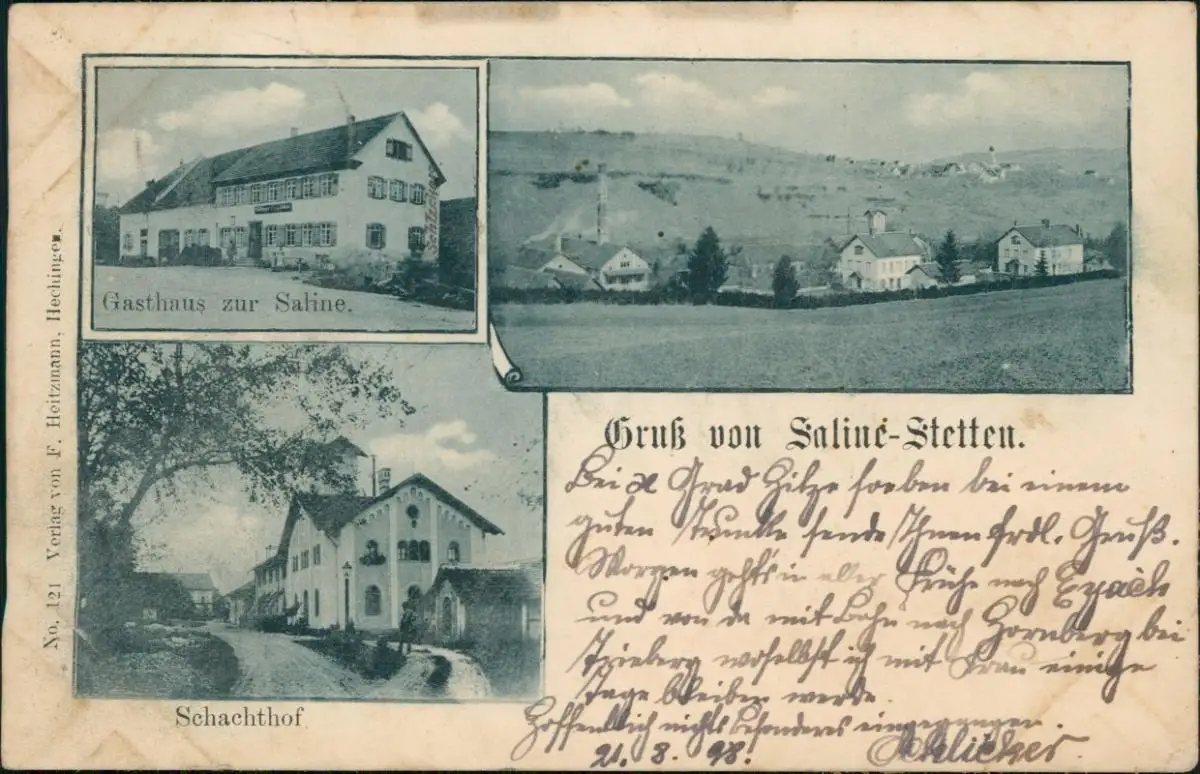 Gasthaus zur Saline.
No. 121 Verlag von F. Heitzmann, Hechingen.
Schachthof
Gruß von Saline-Stetten.
Bei x Grad Hitze soeben bei einem
guten Trunke sende Ihnen frdl. Gruß.
Morgen geht's in aller Frühe nach Eyach
und von da mit Bahn nach Hornberg bei
Triberg woselbst ich mit Frau einige
Tage bleiben werde.
Hoffentlich nichts besonderes eingegangen.
21. 8. 98.